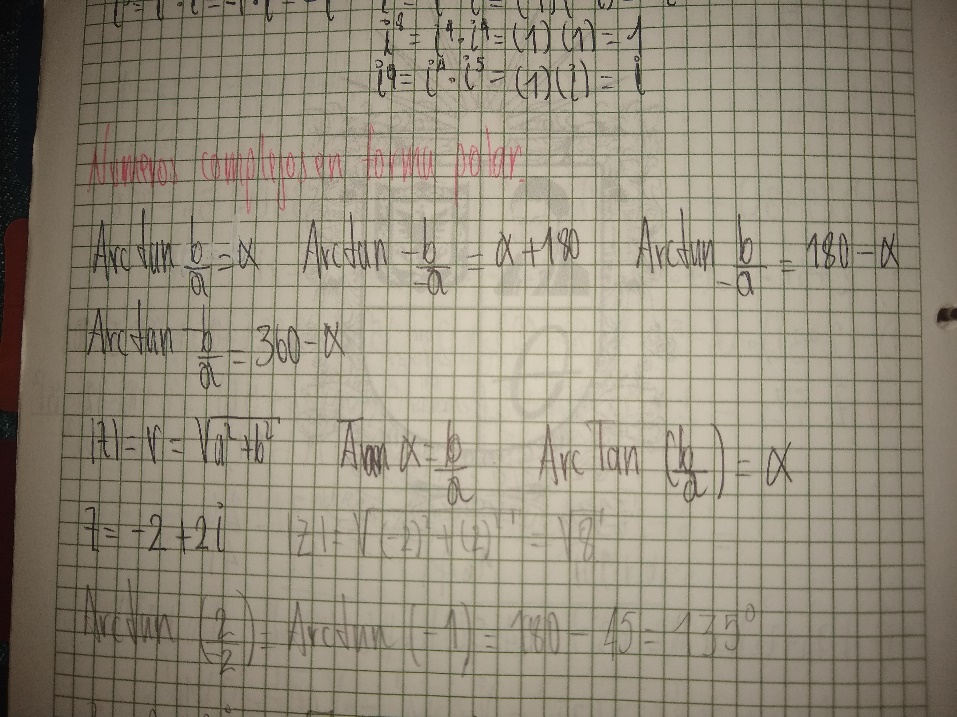 i⁸ = i⁴ · i⁴ = (1)(1) = 1
i⁹ = i⁴ · i⁵ = (1)(i) = i
Números complejos en forma polar.
Arctan b/a = α Arctan -b/-a = α + 180 Arctan b/-a = 180 - α
Arctan -b/a = 360 - α
|z| = r = √a² + b² Tan α = b/a Arc Tan (b/a) = α
z = -2 + 2i |z| = √(-2)² + (2)² = √8
Arctan (2/-2) = Arctan (-1) = 180 - 45 = 135°